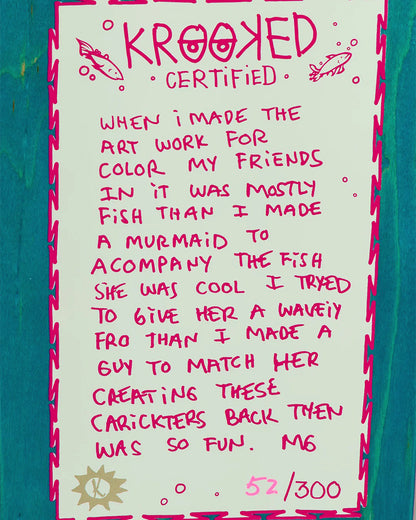 KROOKED
CERTIFIED
WHEN i MADE THE
ART WORK FOR
COLOR MY FRIENDS
IN iT WAS MOSTLY
FISH THAN I MADE
A MURMAID TO
ACOMPANY THE FISH
SHE WAS COOL I TRYED
TO GIVE HER A WAVEIY
FRO THAN I MADE A
GUY TO MATCH HER
CREATING THESE
CARICKTERS BACK THEN
WAS SO FUN. MG
K
52/300